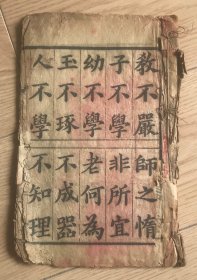 教不嚴師之惰
子不學非所宜
幼不學老何為
玉不琢不成器
人不學不知理